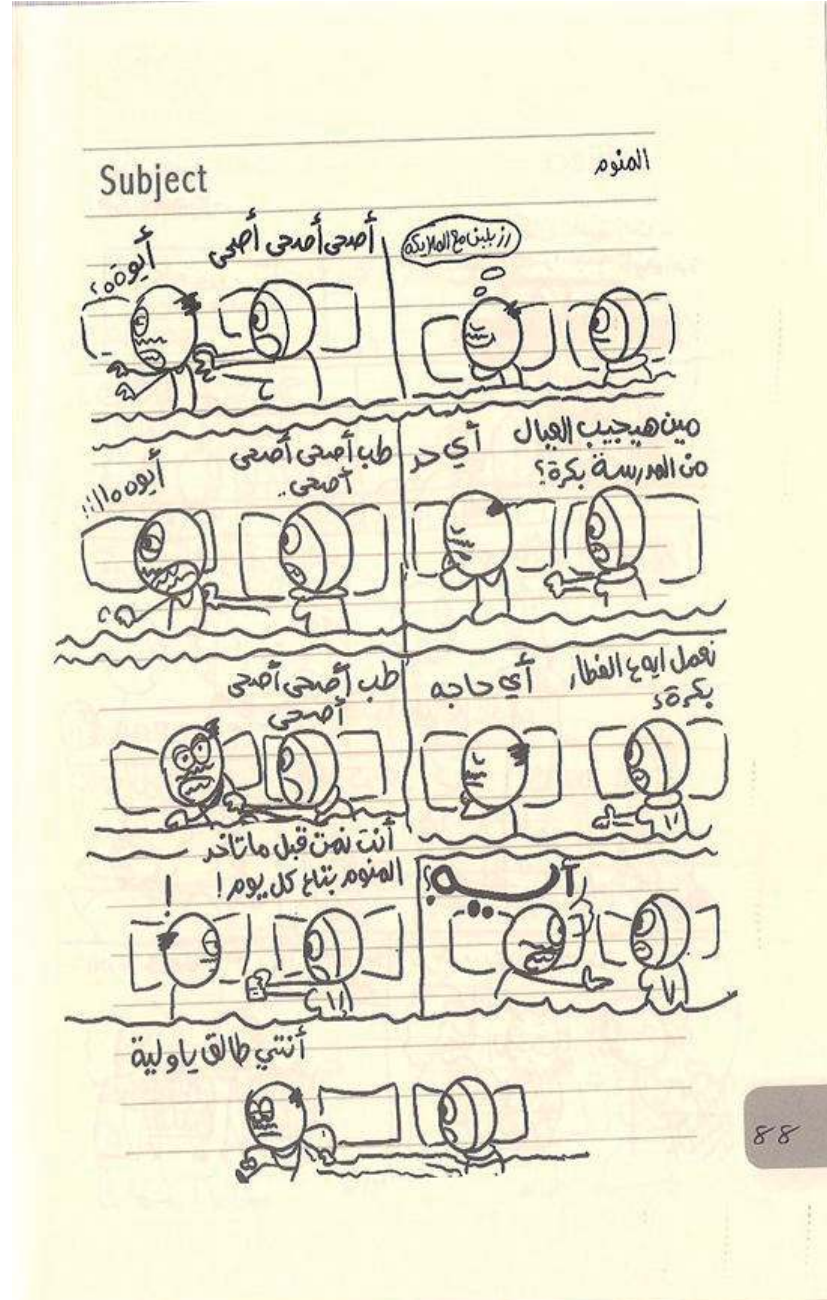 Subject
المنوم
رز بلبن مع الملايكة
أصحى أصحى أصحى
أيوةة؟
مين هيجيب العيال
من المدرسة بكرة؟
أي حد
طب أصحى أصحى
أصحى..
أيوهه!!!
نعمل ايه ع الفطار
بكرة؟
أي حاجه
طب أصحى أصحى
أصحى
أيـــه؟
أنت نمت قبل ماتاخد
المنوم بتاع كل يوم!
!
أنتي طالق ياولية
88